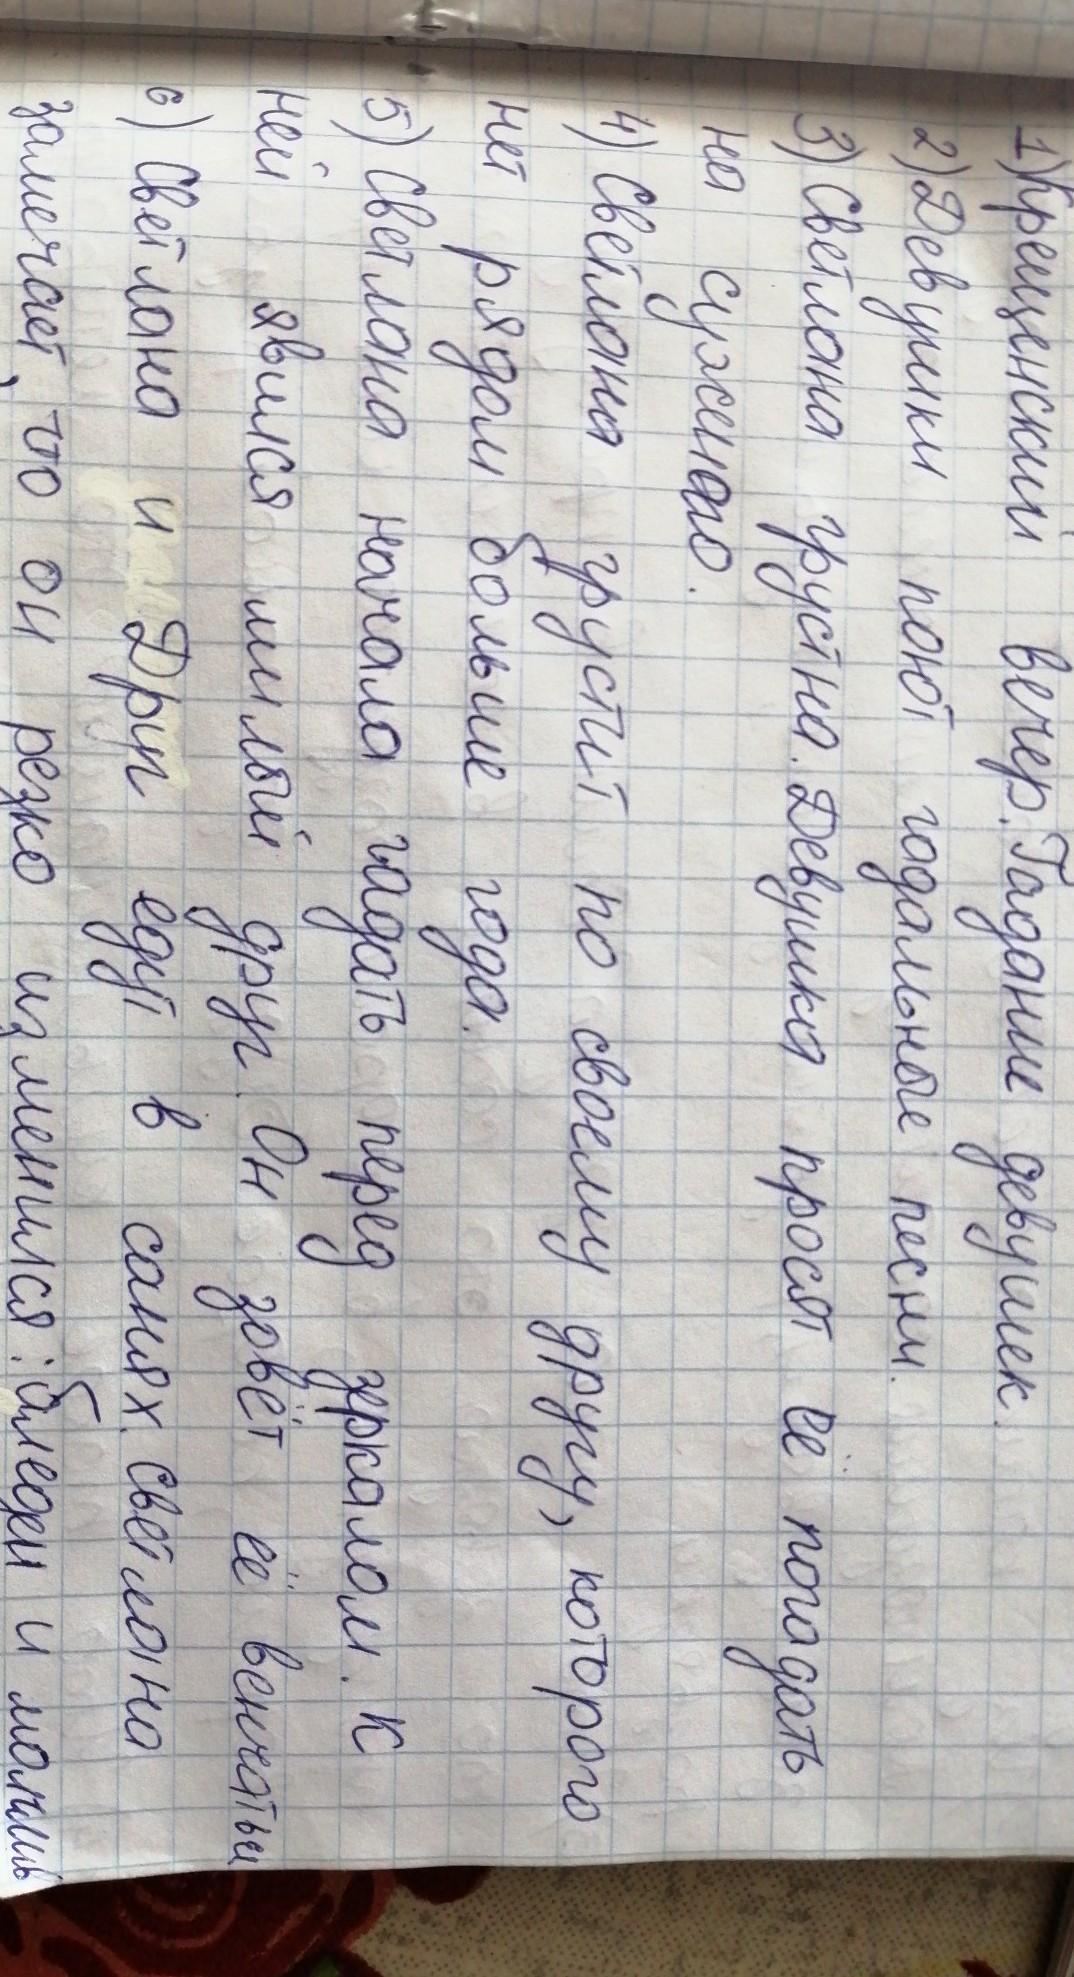 1) Крещенский вечер. Гадание девушек.
2) Девушки поют гадальные песни.
3) Светлана грустна. Девушка просят её погадать
на суженого.
4) Светлана грустит по своему другу, которого
нет рядом больше года.
5) Светлана начала гадать перед зеркалом. К
ней явился милый друг. Он зовёт её венчаться
6) Светлана и Друг едут в санях. Светлана
замечает, что он резко изменился: бледен и молчалив